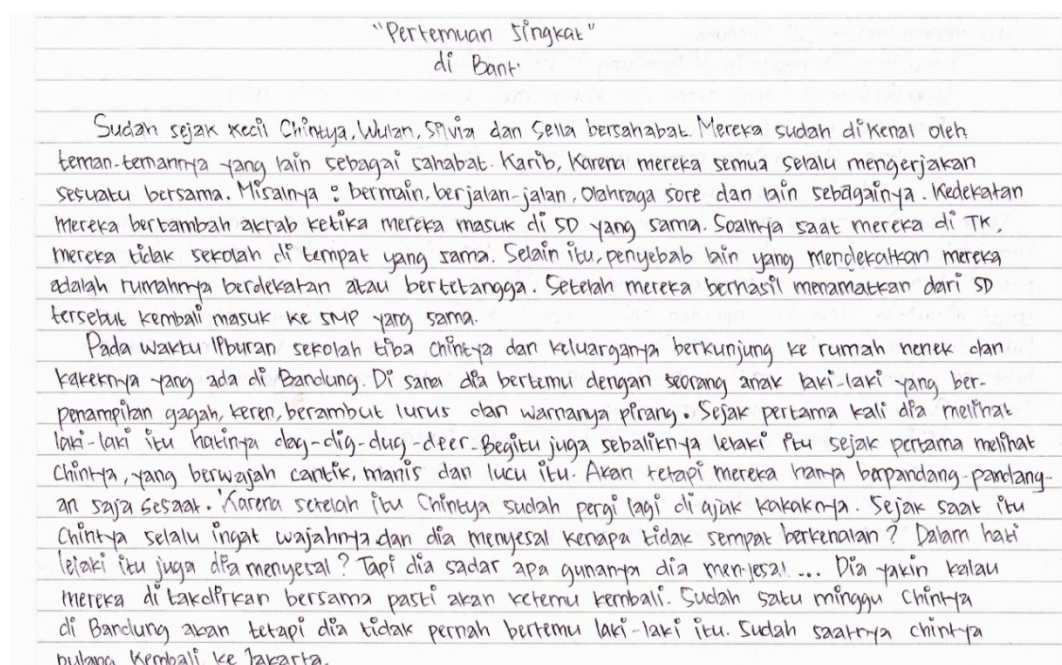 "Pertemuan Singkat"
di Bank
Sudah sejak kecil Chintya, Wulan, Silvia dan Sella bersahabat. Mereka sudah dikenal oleh
teman-temannya yang lain sebagai sahabat. Karib, Karena mereka semua selalu mengerjakan
sesuatu bersama. Misalnya : bermain, berjalan-jalan, Olahraga sore dan lain sebagainya. Kedekatan
mereka bertambah akrab ketika mereka masuk di SD yang sama. Soalnya saat mereka di TK,
mereka tidak sekolah di tempat yang sama. Selain itu, penyebab lain yang mendekatkan mereka
adalah rumahnya berdekatan atau bertetangga. Setelah mereka berhasil menamatkan dari SD
tersebut kembali masuk ke SMP yang sama.
Pada waktu liburan sekolah tiba Chintya dan keluarganya berkunjung ke rumah nenek dan
kakeknya yang ada di Bandung. Di sana dia bertemu dengan seorang anak laki-laki yang ber-
penampilan gagah, keren, berambut lurus dan warnanya pirang. Sejak pertama kali dia melihat
laki-laki itu hatinya dag-dig-dug-deer. Begitu juga sebaliknya lelaki itu sejak pertama melihat
Chintya, yang berwajah cantik, manis dan lucu itu. Akan tetapi mereka hanya berpandang-pandang-
an saja sesaat. Karena setelah itu Chintya sudah pergi lagi di ajak kakaknya. Sejak saat itu
Chintya selalu ingat wajahnya dan dia menyesal kenapa tidak sempat berkenalan ? Dalam hati
lelaki itu juga dia menyesal ? Tapi dia sadar apa gunanya dia menyesal ... Dia yakin kalau
mereka di takdirkan bersama pasti akan ketemu kembali. Sudah satu minggu Chintya
di Bandung akan tetapi dia tidak pernah bertemu laki-laki itu. Sudah saatnya chintya
pulang kembali ke Jakarta.